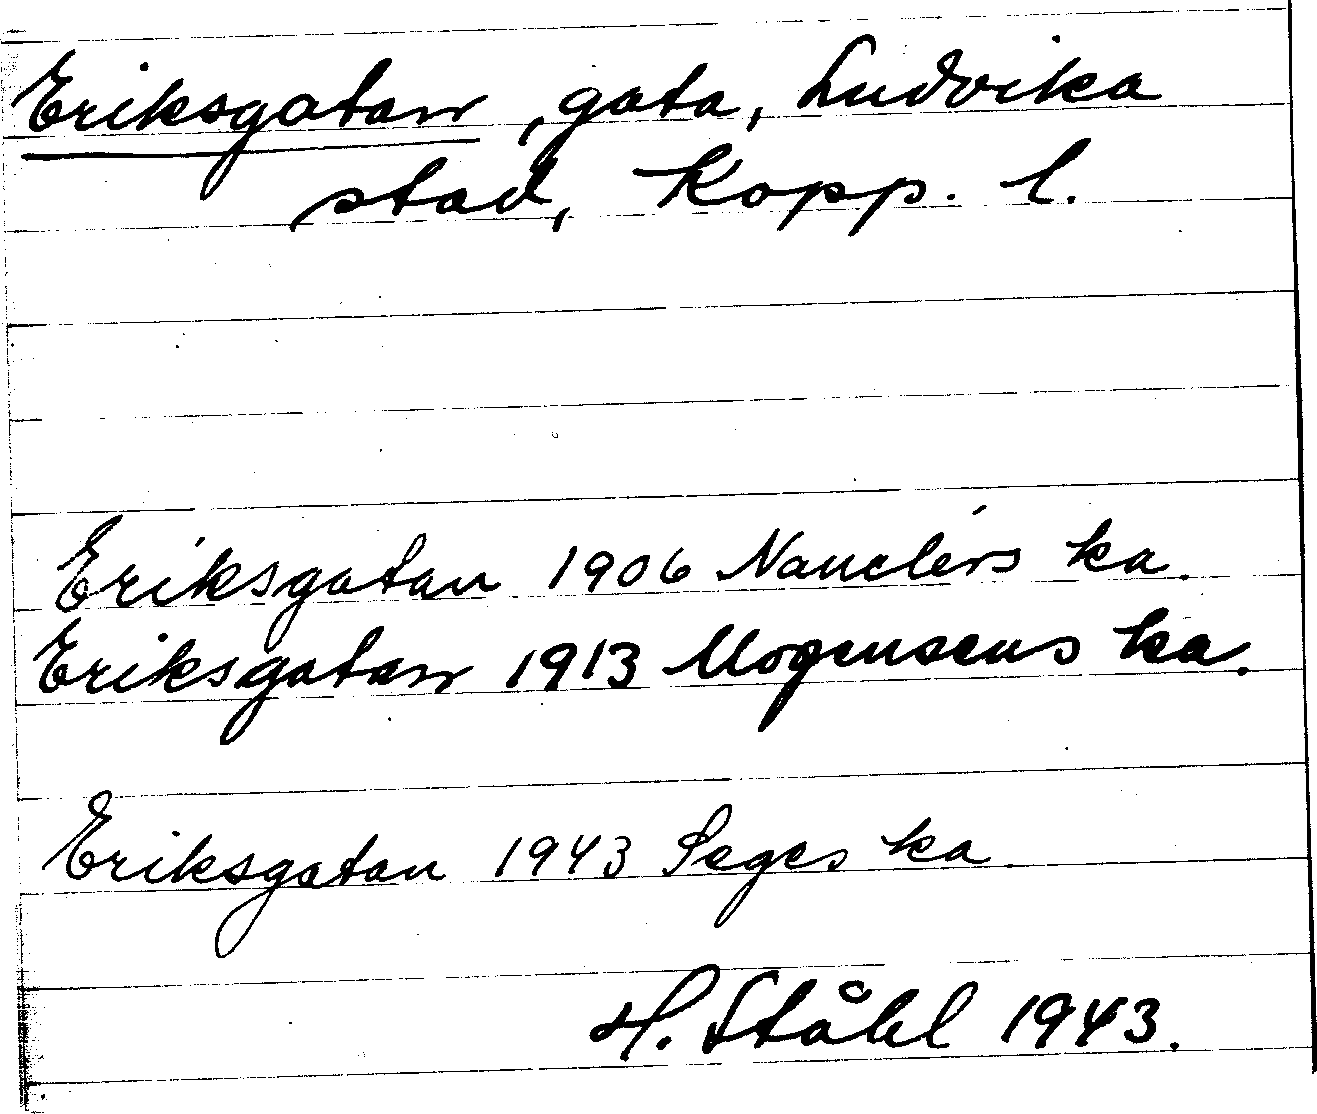 Eriksgatan, gata, Ludvika
stad, Kopp. l.
Eriksgatan 1906 Nauclérs ka.
Eriksgatan 1913 Mogensens ka.
Eriksgatan 1943 Seges ka.
H. Ståhl 1943.